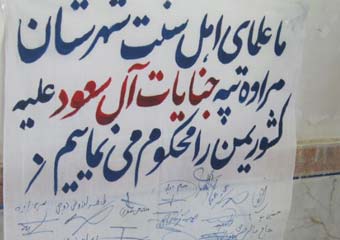 ما علمای اهل سنت شهرستان
مراوه تپه جنایات آل سعود علیه
کشور یمن را محکوم می نماییم